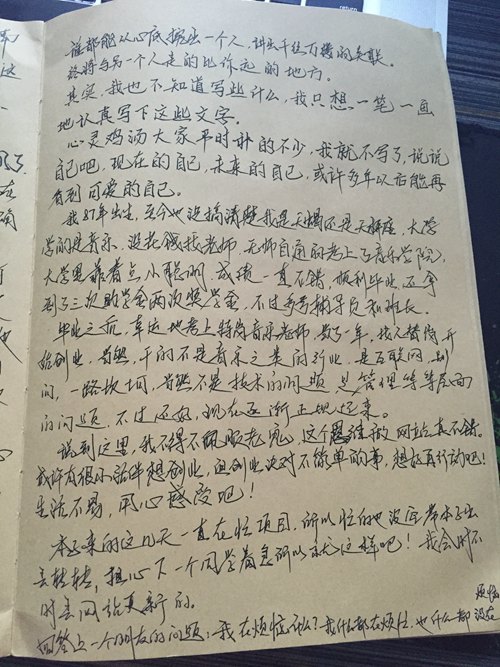 谁都能从心底搬出一个人，讲出千丝万缕的关联
终将与另一个人走的比你远的地方。
其实，我也不知道写些什么，我只想一笔一画
地认真写下这些文字。
心灵鸡汤大家平时补的不少，我就不写了，说说
自己吧，现在的自己，未来的自己，或许多年以后能再
看到可爱的自己。
我87年出生，至今也没搞清楚我是天蝎还是天秤座，大学
学的是音乐，没花钱找老师，无师自通的考上了音乐学院，
大学里靠着点小聪明成绩一直不错，顺利毕业还拿
到了三次助学金两次奖学金，不过多亏辅导员和班长。
毕业之后，幸运地考上特岗音乐老师，教了一年，我不赞待开
始创业，当然，干的不是音乐之类的行业，是互联网，期
间，一路坎坷，当然不是技术的问题是管理等等层面
的问题，不过还好，现在逐渐正规起来。
说到这里，我不得不佩服老宛，这个思维做网站真不错。
或许有很小伙伴想创业，但创业决对不简单的事，想好再行动吧！
生活不易，用心感受吧！
本子来的这几天一直在忙项目，所以忙的也没空带本子出
去转转，担心下一个同学着急所以就这样吧！我会时不
时去网站更新的。
回答上一个朋友的问题，我在烦恼什么？我什么都在烦恼，也什么都没在
烦恼